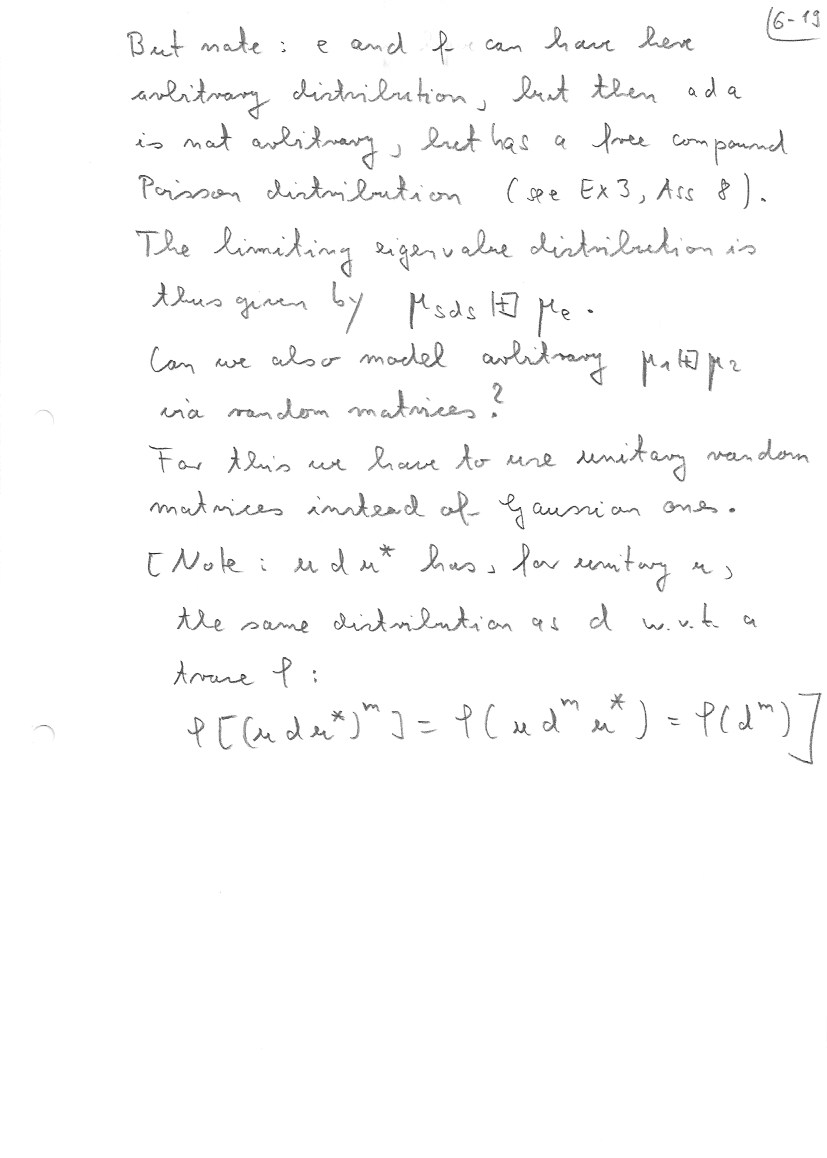 6-19
But note : e and f can have here
arbitrary distribution, but then a d a
is not arbitrary, but has a free compound
Poisson distribution (see Ex 3, Ass 8).
The limiting eigenvalue distribution is
thus given by μ_sds ⊞ μ_e.
Can we also model arbitrary μ_1 ⊞ μ_2
via random matrices?
For this we have to use unitary random
matrices instead of Gaussian ones.
[Note : u d u* has, for unitary u,
the same distribution as d w.r.t. a
trace φ :
φ[(u d u*)^m] = φ(u d^m u*) = φ(d^m)]